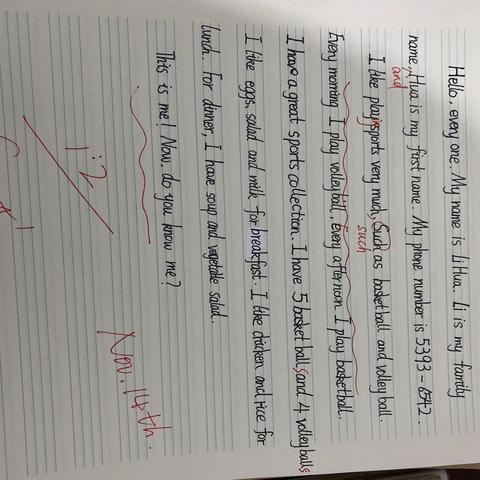 Hello, every one. My name is Li Hua. Li is my family
name, Hua is my first name. My phone number is 5393-6542.
and
I like play sports very much, Such as basketball and volleyball.
such
Every morning I play volleyball, Every afternoon I play basketball.
I have a great sports collection. I have 5 basket balls and 4 volleyballs
I like eggs, salad and milk for breakfast. I like chicken and rice for
lunch. For dinner, I have soup and vegetable salad.
This is me! Now, do you know me?
Nov. 14th.